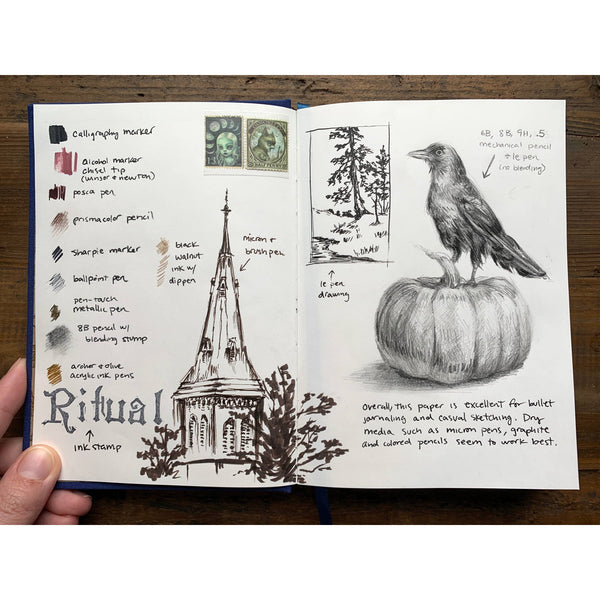 calligraphy marker
alcohol marker
chisel tip
(winsor + newton)
posca pen
prismacolor pencil
sharpie marker
ballpoint pen
pen-touch
metallic pen
8B pencil w/
blending stump
archer + olive
acrylic ink pens
black
walnut
ink w/
dip pen
Ritual
ink stamp
micron +
brush pen
le pen
drawing
6B, 8B, 9H, .5
mechanical pencil
+ le pen
(no blending)
Overall, this paper is excellent for bullet
jornaling and casual sketching. Dry
media such as micron pens, graphite
and colored pencils seem to work best.